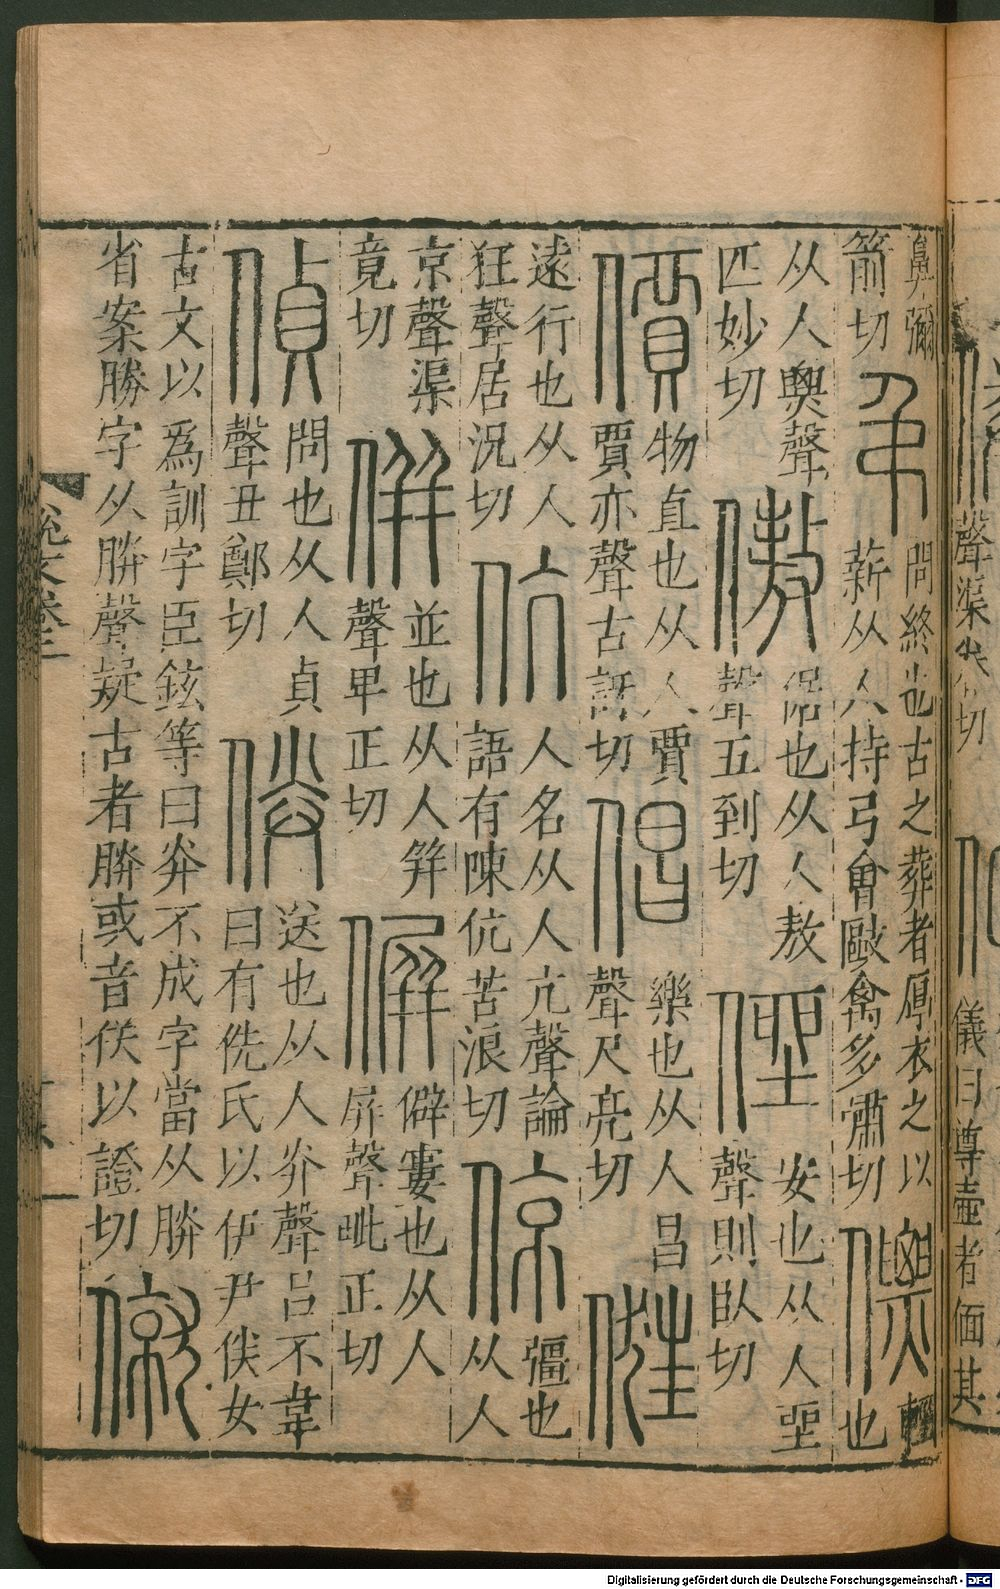 聲渠
切
儀曰尊壺者偭其
鼻彌
箭切
弔
問終也古之葬者厚衣之以
薪从人持弓會歐禽多嘯切
僄
輕
也
从人㶾聲
匹妙切
傲
倨也从人敖
聲五到切
侳
安也从人坐
聲則臥切
價
物直也从人賈
賈亦聲古訝切
倡
樂也从人昌
聲尺亮切
俇
遠行也从人
狂聲居況切
伉
人名从人亢聲論
語有陳伉苦浪切
倞
彊也
从人
京聲渠
竟切
倂
並也从人幷
聲卑正切
偋
僻寠也从人
屛聲毗正切
偵
問也从人貞
聲丑鄭切
㑞
送也从人灷聲呂不韋
曰有侁氏以伊尹㑞女
古文以爲訓字臣鉉等曰灷不成字當从朕
省案勝字从朕聲疑古者朕或音㑞以證切
儆
說文卷三
Digitalisierung gefördert durch die Deutsche Forschungsgemeinschaft - DFG